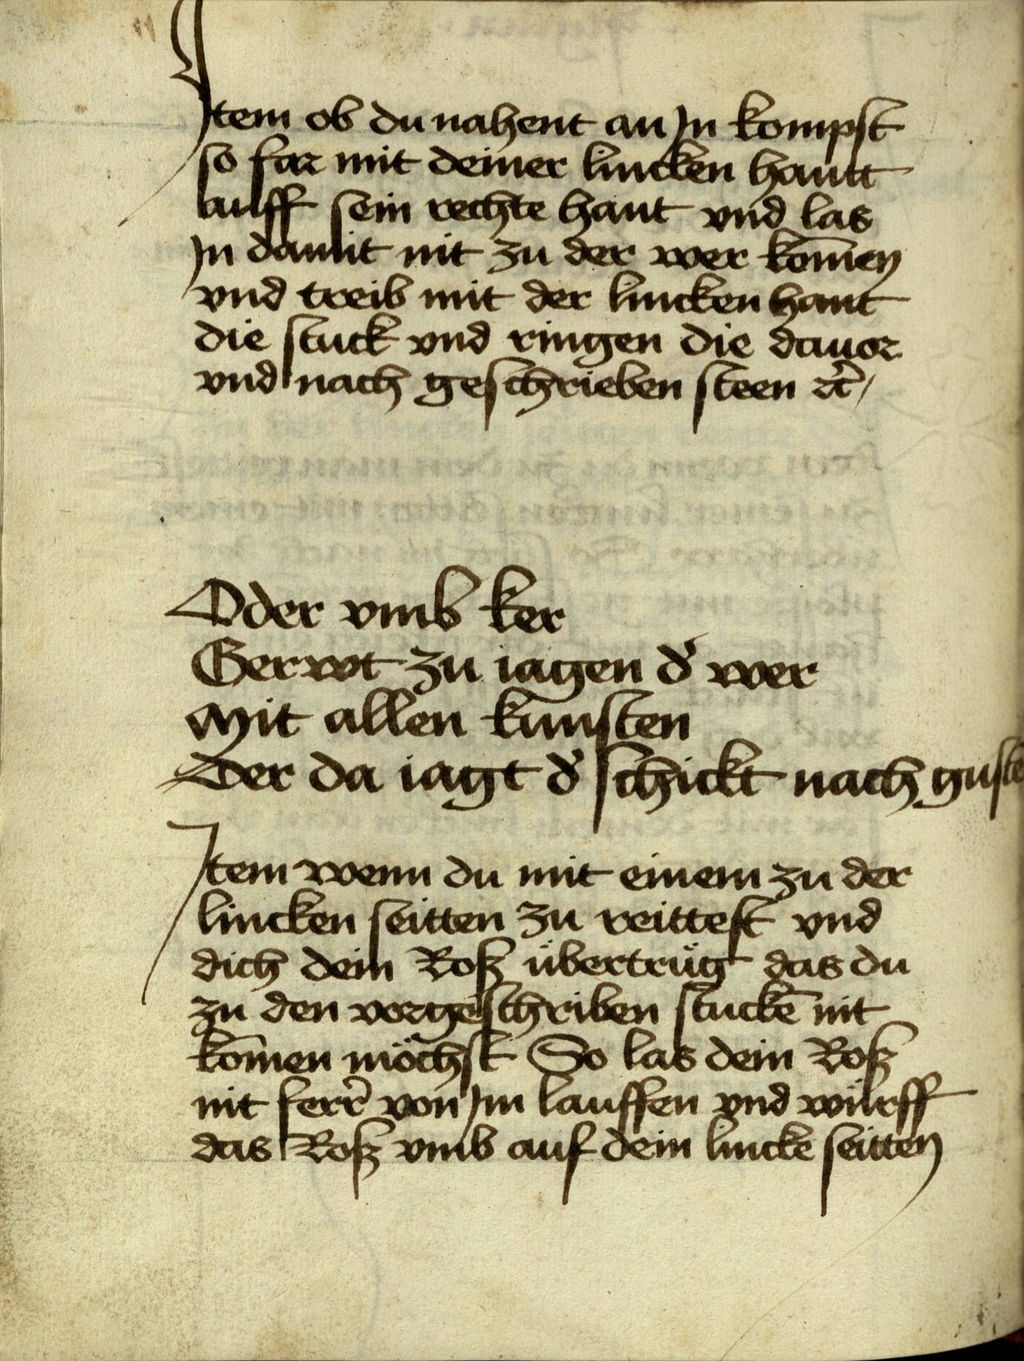 Item ob du nahent an In kompst
so far mit deiner lincken hantt
auff sein rechte hant vnd las
In damit nit zu der wer kom̄en
vnd treib mit der lincken hant
die stuck vnd ringen die dauor
vnd nach geschrieben steen ⁊c̄
Oder vmb ker
Gerwt zu iagen d̕ wer
Mit allen kunsten
Der da iagt d̕ schickt nach guste
Item wenn du mit einem zu der
lincken seitten zu reittest vnd
dich dein Roß übertrüg das du
zu den vorgeschriben stuckē nit
kom̄en möchst So las dein Roß
nit ferr̕ von Im lauffen vnd würff
das Roß vmb auf dein lincke seitten